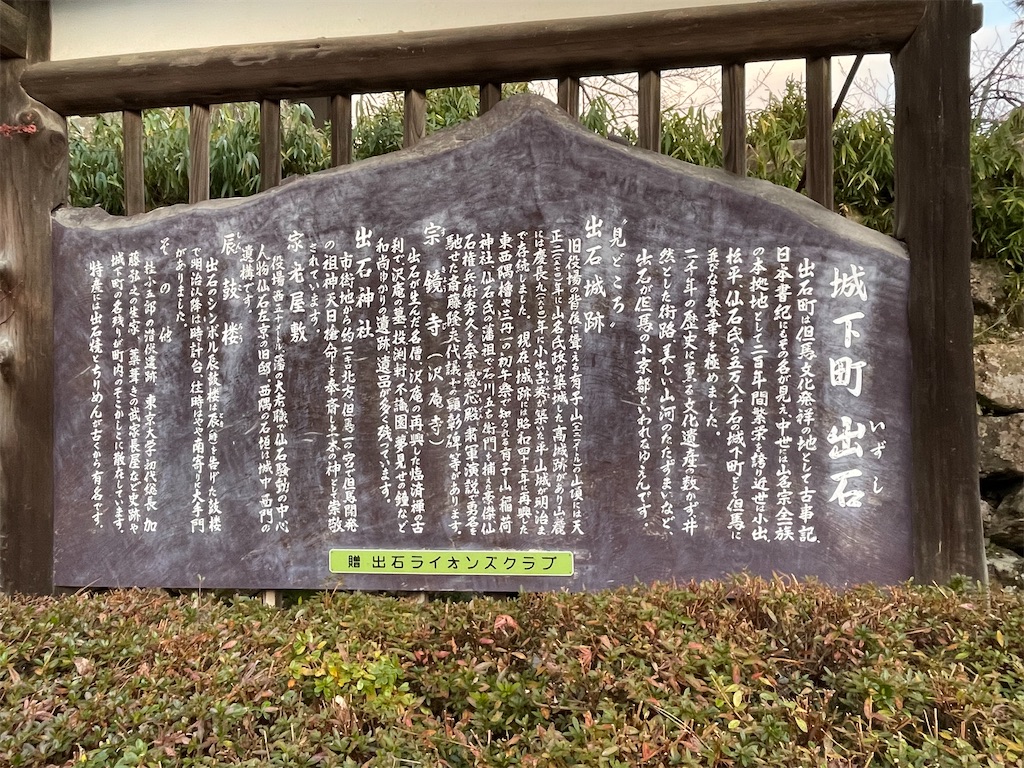 城下町 出石
いずし
出石町は但馬文化発祥の地として古事記、
日本書紀にもその名が見え、中世には山名宗全一族
の本拠地として二百年間繁栄を誇り近世は小出、
松平、仙石氏ら五万八千石の城下町として但馬に
並びなき繁華を極めました。
二千年の歴史に育まれた文化遺産の数かず、井
然とした街路、美しい山河のたたずまいなど、
出石が但馬の小京都といわれるゆえんです。
〝見どころ〟
出石城跡
旧役場の背後に聳える有子山(三二一・五m)の山頂には天
正二(一五七四)年に山名氏政が築城した高城跡があり山麓
には慶長九(一六〇四)年に小出吉英が築いた平山城が明治ま
で存続しました。現在、城跡には昭和四十三年に再興した
東西隅櫓や三月一の初午祭で知られる有子山稲荷
神社、仙石氏の藩祖で石川五右衛門を捕えた豪傑仙
石権兵衛秀久を祭る感応殿、粛軍演説で勇名を
馳せた斎藤隆夫代議士の顕彰碑等があります。
宗鏡寺(沢庵寺)
すきょう
出石が生んだ名僧、沢庵の再興した臨済禅の古
刹で沢庵の墓、投渕軒、不識園、夢見の鐘など
和尚ゆかりの遺跡、遺品が多く残っています。
出石神社
市街地から約二キロ北方、但馬一の宮で但馬開発
の祖神、天日槍命を奉斎し、土木の神として崇敬
されています。
家老屋敷
役場西三十mには藩の大老職で仙石騒動の中心
人物、仙石左京の旧邸、西隅の石垣は城中、西門の
遺構です。
辰鼓楼
しんころう
出石のシンボル、辰鼓楼は辰の時を告げた鼓楼
で明治以降は時計台、往時はやや南寄りに大手門
がありました。
その他
桂小五郎の潜伏遺跡、東京大学初代総長、加
藤弘之の生家、茅葺きの武家長屋など史跡や
城下町の名残りが町内のそこかしこに散在しています。
特産に出石焼とちりめんが古くから有名です。
贈 出石ライオンズクラブ